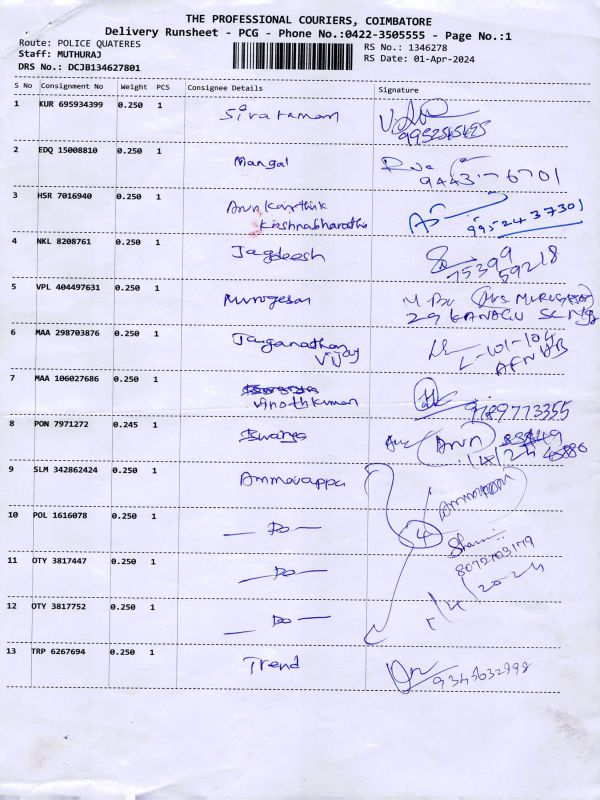 THE PROFESSIONAL COURIERS, COIMBATORE
Delivery Runsheet - PCG - Phone No.:0422-3505555 - Page No.:1
Route: POLICE QUATERES
RS No.: 1346278
Staff: MUTHURAJ
RS Date: 01-Apr-2024
DRS No.: DCJB134627801
S No Consignment No Weight PCS Consignee Details Signature
1 KUR 695934399 0.250 1 Sivaraman
2 EDQ 15008810 0.250 1 Mangal
9443176701
3 HSR 7016940 0.250 1 Arun Karthik
Krishnabharathi 9952437301
4 NKL 8208761 0.250 1 Jagdeesh
75399
59218
5 VPL 404497631 0.250 1 Murugesan
6 MAA 298703876 0.250 1 Jaganathan
Vijay
L-101-104
7 MAA 106027686 0.250 1
Vinothkumar 9789773355
8 PON 7971272 0.245 1 Arun
9 SLM 342862424 0.250 1 Ammavappa
10 POL 1616078 0.250 1 — Do — 4
11 OTY 3817447 0.250 1 — Do —
12 OTY 3817752 0.250 1 — Do —
13 TRP 6267694 0.250 1 Trend
9345632998